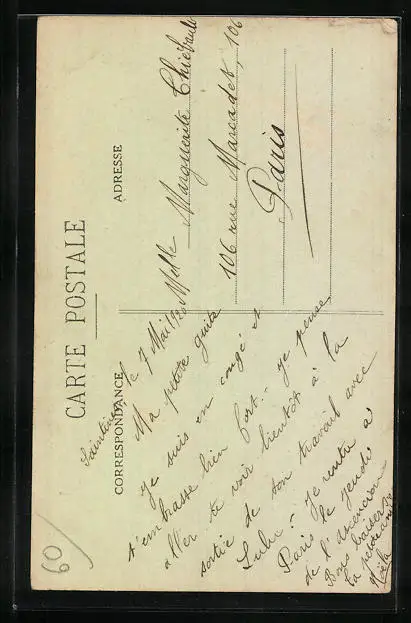 CARTE POSTALE
CORRESPONDANCE
ADRESSE
le 7 Mai
Ma petite
Je suis en congé et
t'embrasse bien fort. - Je pense
aller te voir bientôt à la
sortie de ton travail avec
Lulu - Je rentre à
Paris le jeudi
de l'Ascencion
Bons baisers
Melle Marguerite
106 rue Marcadet, 106
Paris
60